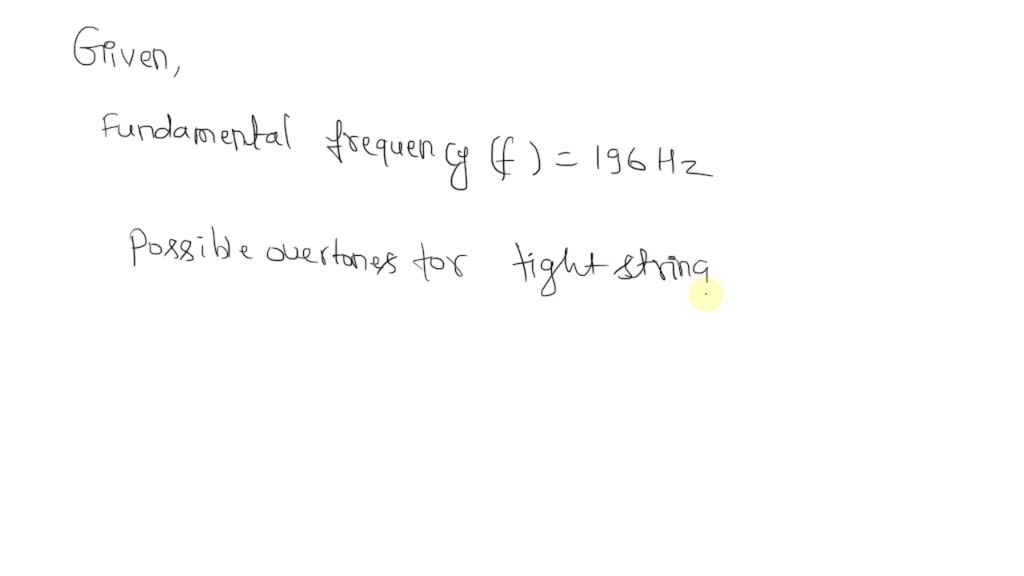 Given,
Fundamental frequency (f) = 196 Hz
Possible overtones for tight string